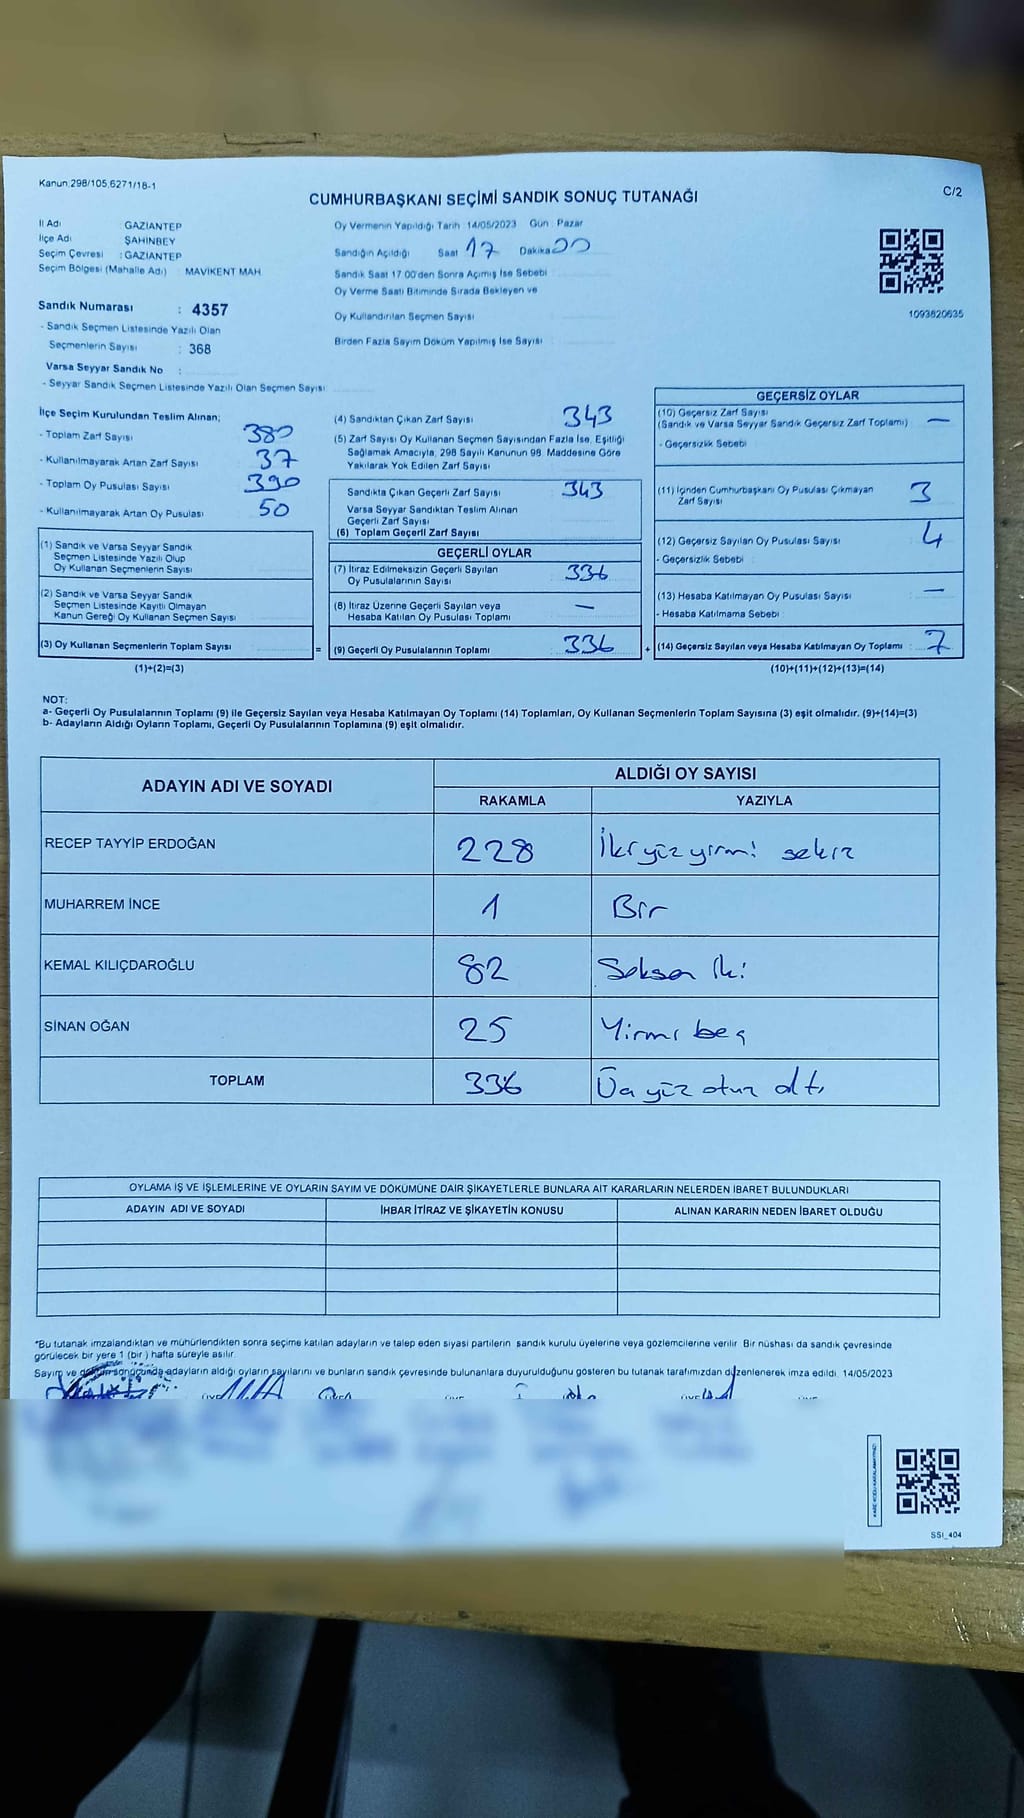 Kanun:298/105,6271/18-1
C/2
CUMHURBAŞKANI SEÇİMİ SANDIK SONUÇ TUTANAĞI
İl Adı GAZİANTEP
İlçe Adı ŞAHİNBEY
Seçim Çevresi : GAZİANTEP
Seçim Bölgesi (Mahalle Adı) : MAVİKENT MAH.
Sandık Numarası : 4357
- Sandık Seçmen Listesinde Yazılı Olan
Seçmenlerin Sayısı : 368
Varsa Seyyar Sandık No :
- Seyyar Sandık Seçmen Listesinde Yazılı Olan Seçmen Sayısı
Oy Vermenin Yapıldığı Tarih 14/05/2023 Gün Pazar
Sandığın Açıldığı Saat 17 Dakika 00
Sandık Saat 17.00'den Sonra Açımış İse Sebebi
Oy Verme Saati Bitiminde Sırada Bekleyen ve
Oy Kullandırılan Seçmen Sayısı
Birden Fazla Sayım Döküm Yapılmış İse Sayısı
1093820635
İlçe Seçim Kurulundan Teslim Alınan;
- Toplam Zarf Sayısı 380
- Kullanılmayarak Artan Zarf Sayısı 37
- Toplam Oy Pusulası Sayısı 390
- Kullanılmayarak Artan Oy Pusulası 50
(1) Sandık ve Varsa Seyyar Sandık
Seçmen Listesinde Yazılı Olup
Oy Kullanan Seçmenlerin Sayısı
(2) Sandık ve Varsa Seyyar Sandık
Seçmen Listesinde Kayıtlı Olmayan
Kanun Gereği Oy Kullanan Seçmen Sayısı
(3) Oy Kullanan Seçmenlerin Toplam Sayısı =
(1)+(2)=(3)
(4) Sandıktan Çıkan Zarf Sayısı 343
(5) Zarf Sayısı Oy Kullanan Seçmen Sayısından Fazla İse, Eşitliği
Sağlamak Amacıyla, 298 Sayılı Kanunun 98. Maddesine Göre
Yakılarak Yok Edilen Zarf Sayısı
Sandıkta Çıkan Geçerli Zarf Sayısı 343
Varsa Seyyar Sandıktan Teslim Alınan
Geçerli Zarf Sayısı
(6) Toplam Geçerli Zarf Sayısı
GEÇERLİ OYLAR
(7) İtiraz Edilmeksizin Geçerli Sayılan
Oy Pusulalarının Sayısı 336
(8) İtiraz Üzerine Geçerli Sayılan veya
Hesaba Katılan Oy Pusulası Toplamı —
(9) Geçerli Oy Pusulalarının Toplamı 336 +
GEÇERSİZ OYLAR
(10) Geçersiz Zarf Sayısı
(Sandık ve Varsa Seyyar Sandık Geçersiz Zarf Toplamı) —
- Geçersizlik Sebebi
(11) İçinden Cumhurbaşkanı Oy Pusulası Çıkmayan
Zarf Sayısı 3
(12) Geçersiz Sayılan Oy Pusulası Sayısı 4
- Geçersizlik Sebebi
(13) Hesaba Katılmayan Oy Pusulası Sayısı : —
- Hesaba Katılmama Sebebi
(14) Geçersiz Sayılan veya Hesaba Katılmayan Oy Toplamı : 7
(10)+(11)+(12)+(13)=(14)
NOT:
a- Geçerli Oy Pusulalarının Toplamı (9) ile Geçersiz Sayılan veya Hesaba Katılmayan Oy Toplamı (14) Toplamları, Oy Kullanan Seçmenlerin Toplam Sayısına (3) eşit olmalıdır. (9)+(14)=(3)
b- Adayların Aldığı Oyların Toplamı, Geçerli Oy Pusulalarının Toplamına (9) eşit olmalıdır.
ADAYIN ADI VE SOYADI ALDIĞI OY SAYISI
RAKAMLA YAZIYLA
RECEP TAYYİP ERDOĞAN 228 İkiyüzyirmi sekiz
MUHARREM İNCE 1 Bir
KEMAL KILIÇDAROĞLU 82 Seksen İki
SİNAN OĞAN 25 Yirmi beş
TOPLAM 336 Üçyüz otuz altı
OYLAMA İŞ VE İŞLEMLERİNE VE OYLARIN SAYIM VE DÖKÜMÜNE DAİR ŞİKAYETLERLE BUNLARA AİT KARARLARIN NELERDEN İBARET BULUNDUKLARI
ADAYIN ADI VE SOYADI İHBAR İTİRAZ VE ŞİKAYETİN KONUSU ALINAN KARARIN NEDEN İBARET OLDUĞU
*Bu tutanak imzalandıktan ve mühürlendikten sonra seçime katılan adayların ve talep eden siyasi partilerin sandık kurulu üyelerine veya gözlemcilerine verilir. Bir nüshası da sandık çevresinde
görülecek bir yere 1 (bir ) hafta süreyle asılır.
Sayım ve döküm sonucunda adayların aldığı oyların sayılarını ve bunların sandık çevresinde bulunanlara duyurulduğunu gösteren bu tutanak tarafımızdan düzenlenerek imza edildi. 14/05/2023
SSI_404